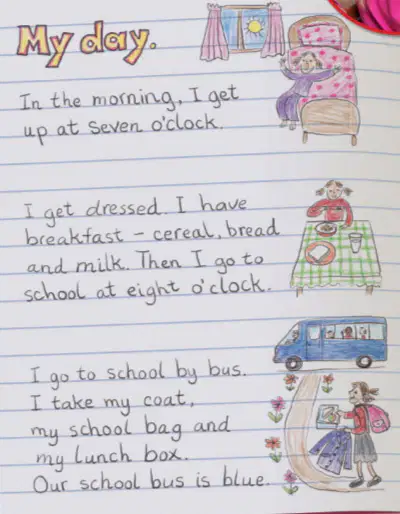 My day.
In the morning, I get
up at seven o'clock.
I get dressed. I have
breakfast – cereal, bread
and milk. Then I go to
school at eight o'clock.
I go to school by bus.
I take my coat,
my school bag and
my lunch box.
Our school bus is blue.